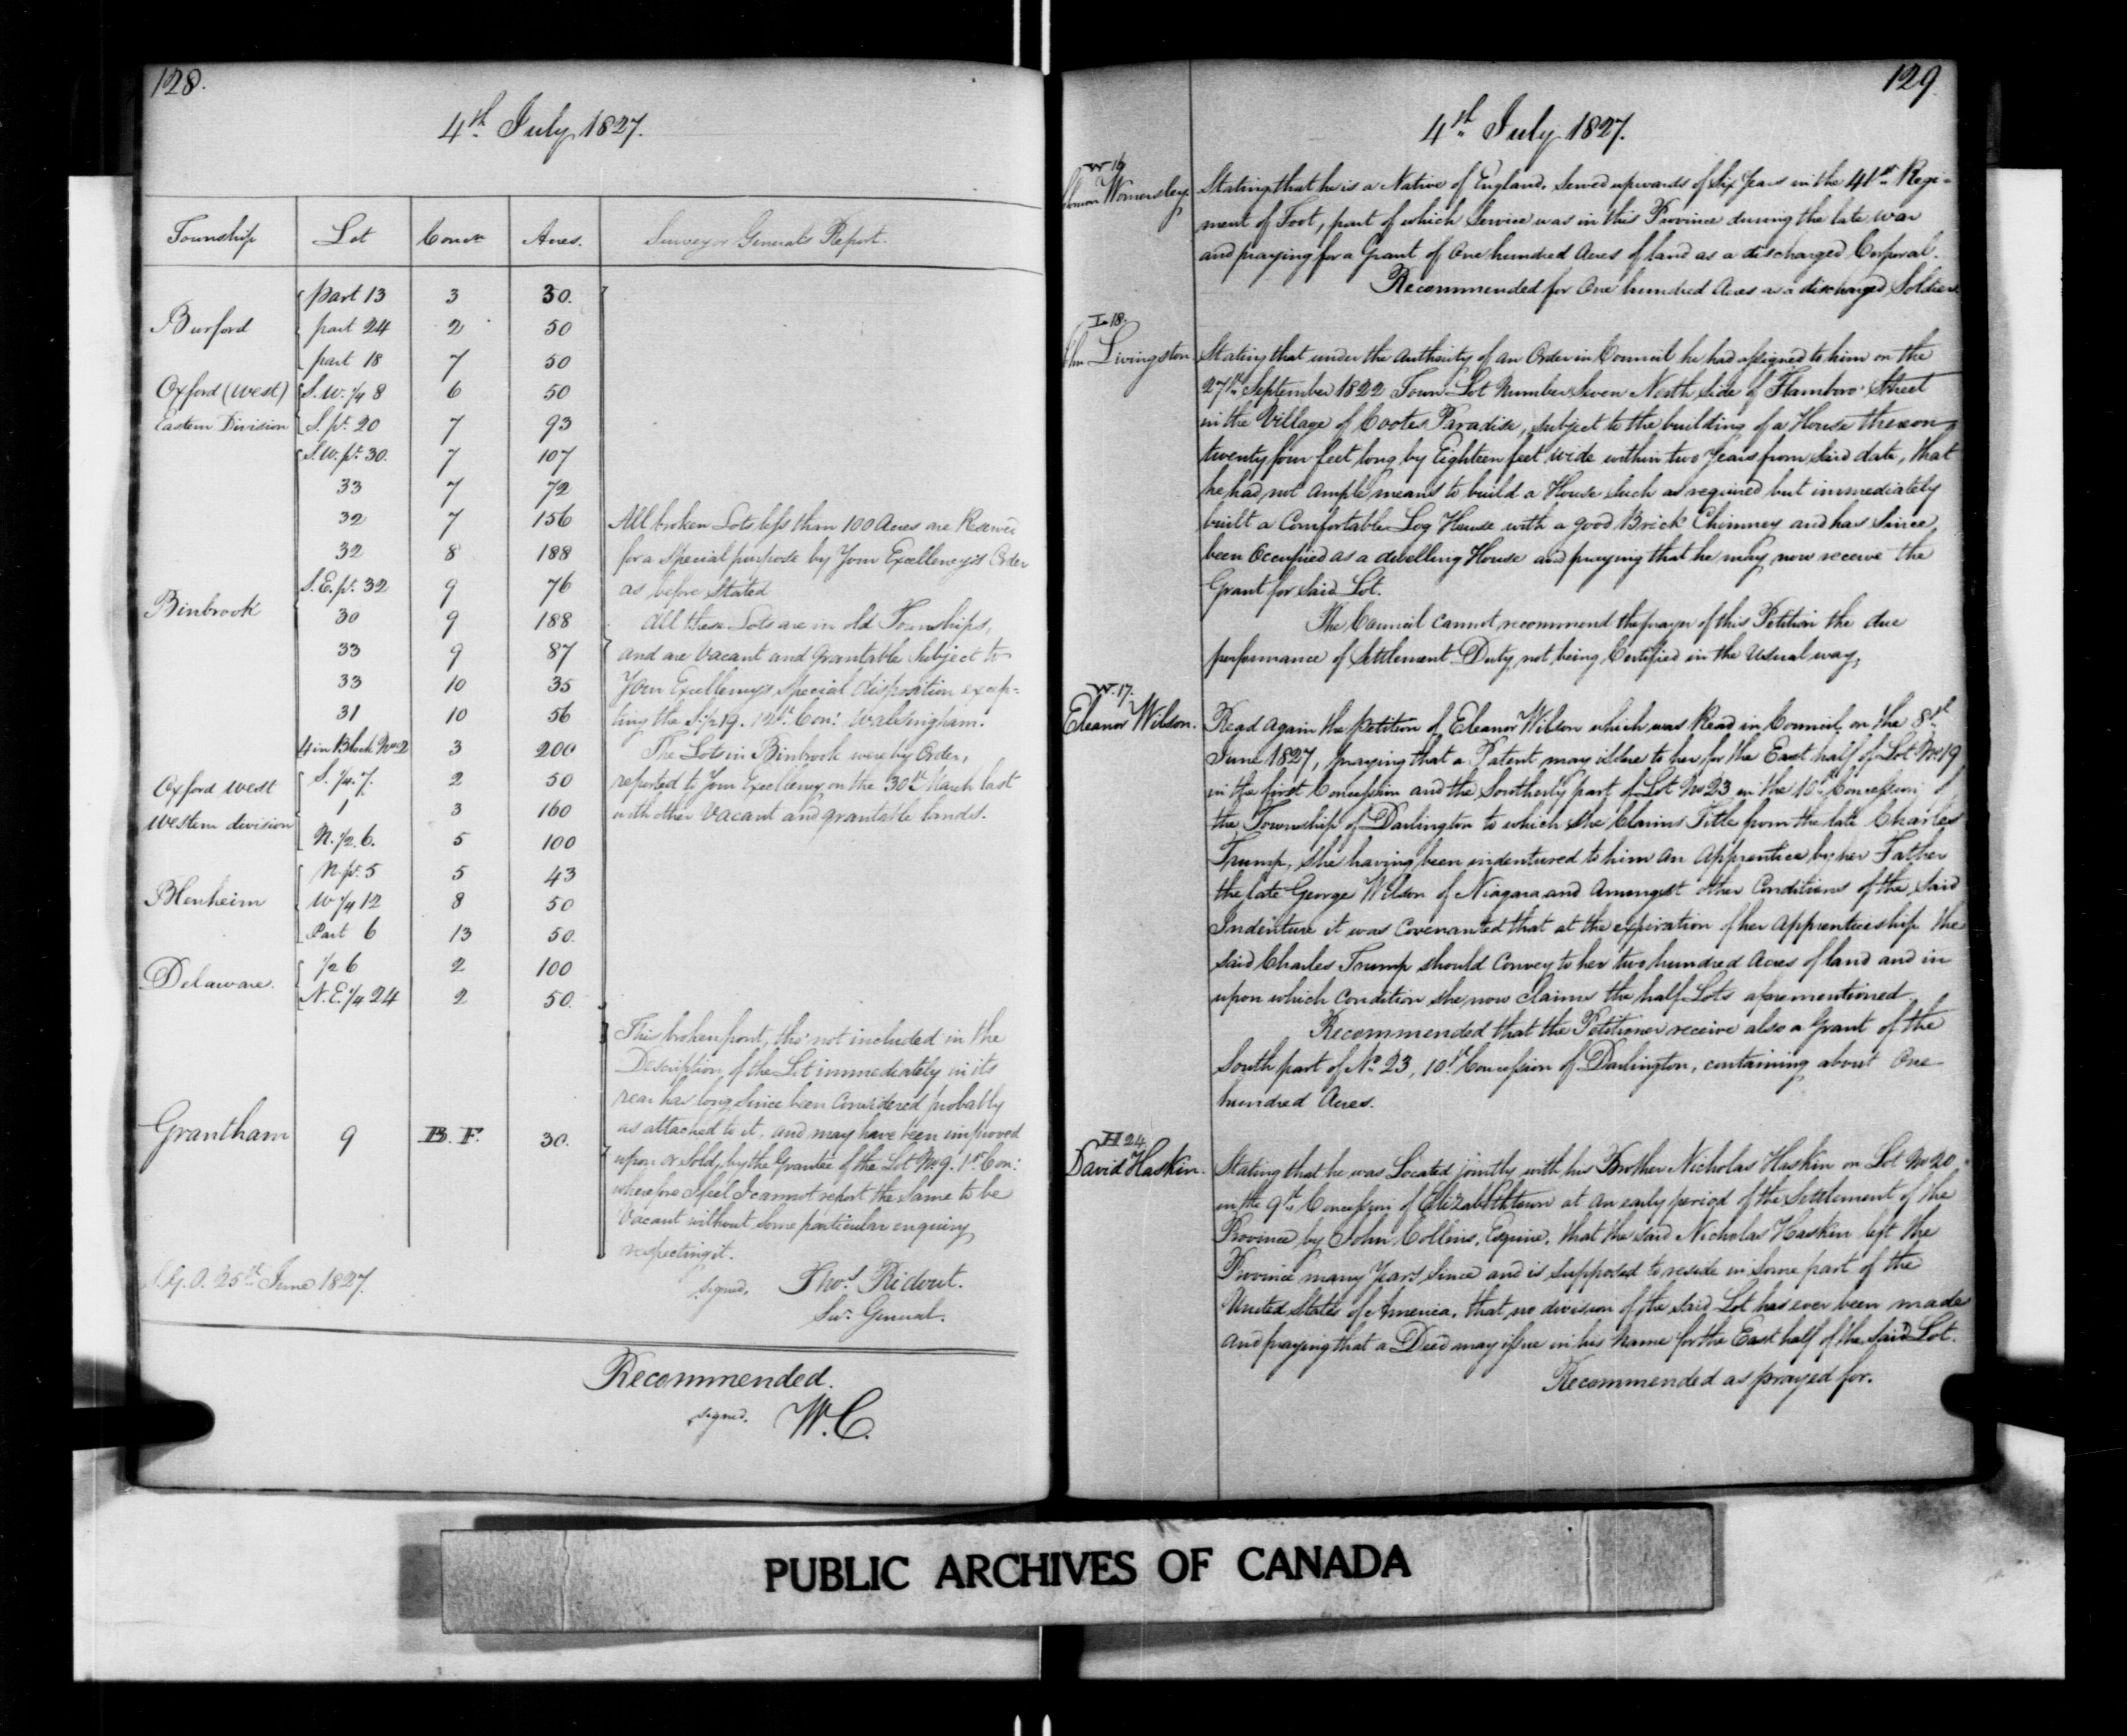 128.
4th July 1827.
Township Lot Concn Acres. Surveyor Generals Report.
part 13 3 30.
Burford part 24 2 50
part 18 7 50
Oxford (West) S.W. 1/4 8 6 50
Eastern Division S. pt. 20 7 93
S.W. pt. 30. 7 107
33 7 72
32 7 156 All broken Lots less than 100 Acres are Reserved
32 8 188 for a Special purpose by Your Excellency's Order
S.E. pt. 32 9 76 as before Stated
Binbrook 30 9 188 All these Lots are in old Townships,
33 9 87 and are Vacant and grantable Subject to
33 10 35 Your Excellency's Special disposition excep=
31 10 56 ting the S. 1/2 19. 12th Con: Walsingham.
4 in Block No 2 3 200 The Lots in Binbrook were by Order,
Oxford West S. 1/4. 7. 2 50 reported to Your Excellency on the 30th March last
1 3 160 with other Vacant and grantable lands.
Western division
N. 1/2. 6. 5 100
N. pt. 5 5 43
Blenheim W 1/4 12 8 50
Part 6 13 50.
Delaware. 1/2 6 2 100
N.E. 1/4 24 2 50.
This broken front, tho' not included in the
Description of the Lot immediately in its
rear has long since been Considered probably
as attached to it, and may have been improved
Grantham 9 B. F. 30.
upon or Sold, by the Grantee of the Lot No. 9. 1st Con:
wherefore I feel I cannot report the Same to be
Vacant without some particular enquiry
respecting it.
S.G.O. 25th June 1827.
signed, Thos. Ridout.
Sur. General.
Recommended.
signed. W. C.
129
4th July 1827.
W 16
Womersley Stating that he is a Native of England, Served upwards of Six Years in the 41st Regi=
ment of Foot, part of which Service was in this Province during the late War
and praying for a Grant of One hundred Acres of land as a discharged Corporal.
Recommended for One hundred Acres as a discharged Soldier
L 18.
Livingston. Stating that under the Authority of an Order in Council he had assigned to him on the
27th September 1822 Town Lot Number Seven North Side of Flamboro' Street
in the Village of Cootes Paradise, subject to the building of a House thereon
twenty four feet long by Eighteen feet wide within two Years from Said date, that
he had not Ample means to build a House Such as required but immediately
built a Comfortable Log House with a good Brick Chimney and has Since
been Occupied as a dwelling House and praying that he may now receive the
Grant for Said Lot.
The Council cannot recommend the prayer of this Petition the due
performance of Settlement Duty not being Certified in the Usual way,
W. 17.
Eleanor Wilson. Read Again the Petition of Eleanor Wilson which was Read in Council on the 8th
June 1827, praying that a Patent may issue to her for the East half of Lot No 19
in the first Concession and the Southerly part of Lot No 23 in the 10th Concession of
the Township of Darlington to which She Claims Title from the late Charles
Trump, She having been indentured to him An Apprentice by her Father
the late George Wilson of Niagara and Amongst other Conditions of the Said
Indenture it was Covenanted that at the expiration of her Apprenticeship the
Said Charles Trump should Convey to her two hundred Acres of land and in
upon which Condition she now claims the half Lots aforementioned
Recommended that the Petitioner receive also a Grant of the
South part of No. 23, 10th Concession of Darlington, containing about One
hundred Acres.
H 24
David Haskin. Stating that he was Located jointly with his Brother Nicholas Haskin on Lot No 20
in the 9th Concession of Elizabethtown at An early period of the Settlement of the
Province by John Collins, Esquire, that the said Nicholas Haskin left the
Province many Years Since and is Supposed to reside in Some part of the
United States of America, that no division of the said Lot has ever been made
and praying that a Deed may issue in his Name for the East half of the said Lot.
Recommended as prayed for.
PUBLIC ARCHIVES OF CANADA